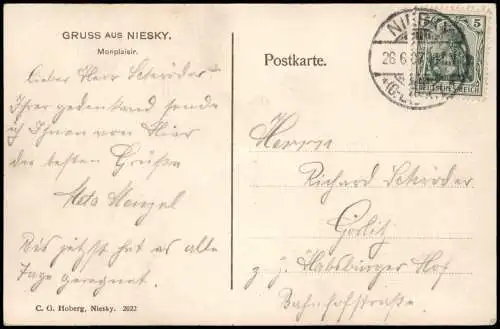 GRUSS AUS NIESKY.
Monplaisir.
Lieber Herr Schröder
Ihrer gedenkend sende
ich Ihnen von Hier
die besten Grüße
Meta Menzel
Bis jetzt hat es alle
Tage geregnet.
C. G. Hoberg, Niesky. 2622
Postkarte.
NIESKY
26.6.0
5
DEUTSCHES REICH
Herrn
Richard Schröder
Görlitz
z. Z. Habsburger Hof
Bahnhofstraße.